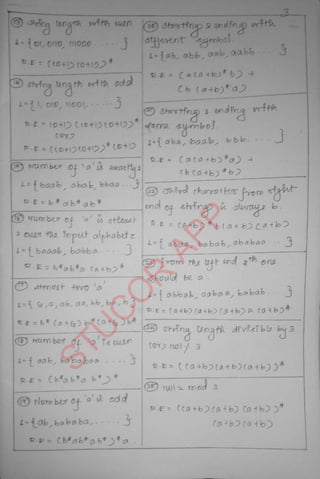 3
(13) string length with even
L = { 01, 0110, 11000 ..... }
R.E = ((0+1)(0+1))*
(14) string length with odd
L = { 1, 010, 11001, ..... }
R.E = (0+1)((0+1)(0+1))*
(or)
R.E = ((0+1)(0+1))*(0+1)
Number of 'a' is exactly 2
L = { baab, abab, bbaa ... }
R.E = b* ab* ab*
Number of 'a' is atleast
2 over the input alphabet Σ
L = { baaab, babba .... }
R.E = b*ab*a (a+b)*
(17) atmost two 'a'
L = { ε, a, ab, aa, bb, bb, b }
R.E = b* (a+ε) b* (a+ε) b*
(18) Number of 'a' is even
L = { aab, bababaa ..... }
R.E = (b*ab*a b*)*
(19) Number of 'a' is odd
L = { ab, bababa, ..... }
R.E = (b*ab*ab*)*a
(20) starting & ending with
different symbol.
L = { ab, abb, aab, aabb .... }
R.E = (a(a+b)*b) +
(b(a+b)*a)
(21) starting & ending with
same symbol.
L = { aba, baab, bbb .... }
R.E = (a(a+b)*a) +
(b(a+b)*b)
(22) Third character from right
end of string is always b.
R.E = (a+b)* b(a+b)(a+b)
L = { abaa, babab, ababaa .. }
(23) from the left end
should be a
L = { abbab, aabaa, babab ... }
R.E = (a+b)(a+b)(a+b) a (a+b)*
(24) string length divisible by 3
(or) |w| / 3
R.E = ((a+b)(a+b)(a+b))*
(25) |w| 2 mod 3
R.E = ((a+b)(a+b)(a+b))*
(a+b)(a+b)
STUCOR APP